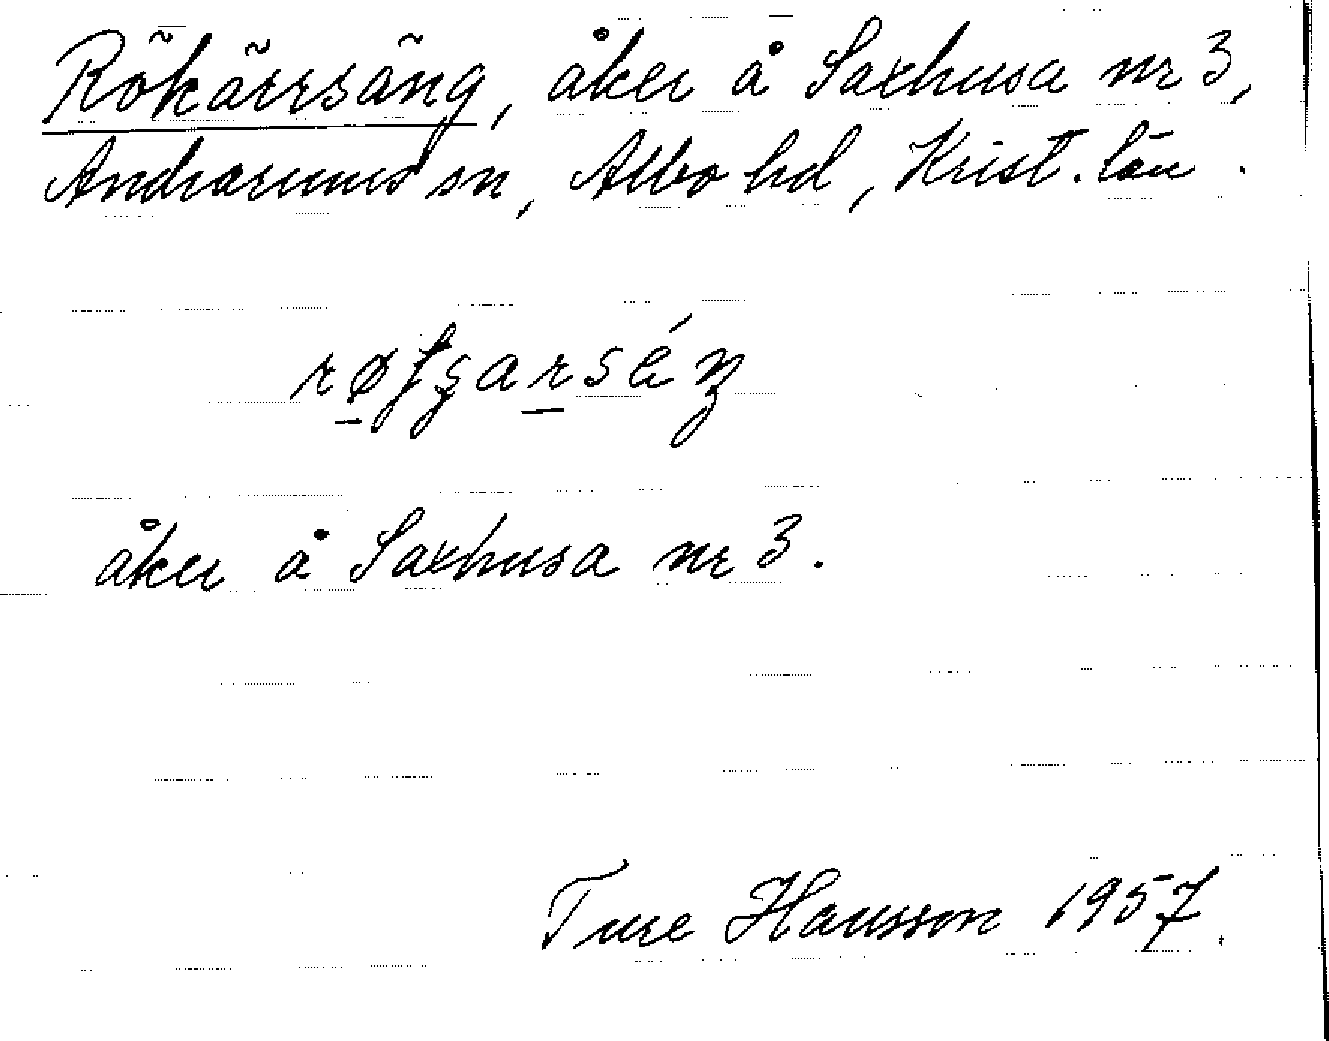 Rökärrsäng, åker å Saxhusa nr 3,
Andrarums sn, Albo hd, Krist. län.
åker å Saxhusa nr 3.
Ture Hansson 1957.